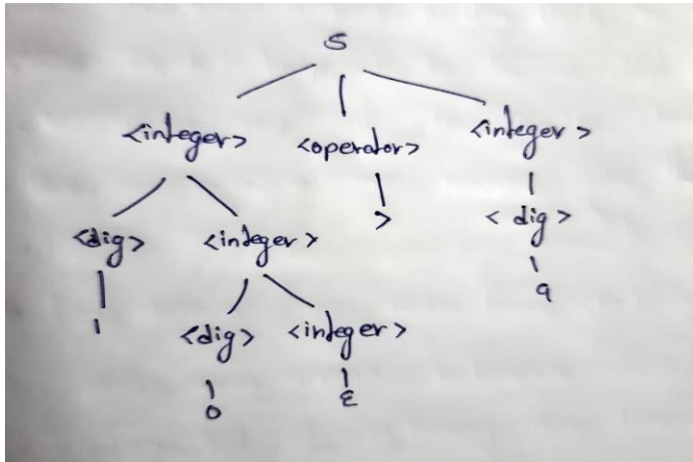 S
<integer> <operator> <integer>
<dig> <integer> > <dig>
1 <dig> <integer> 9
0 ε